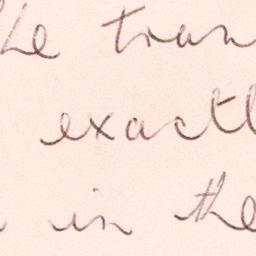 the tran
exactl
in the